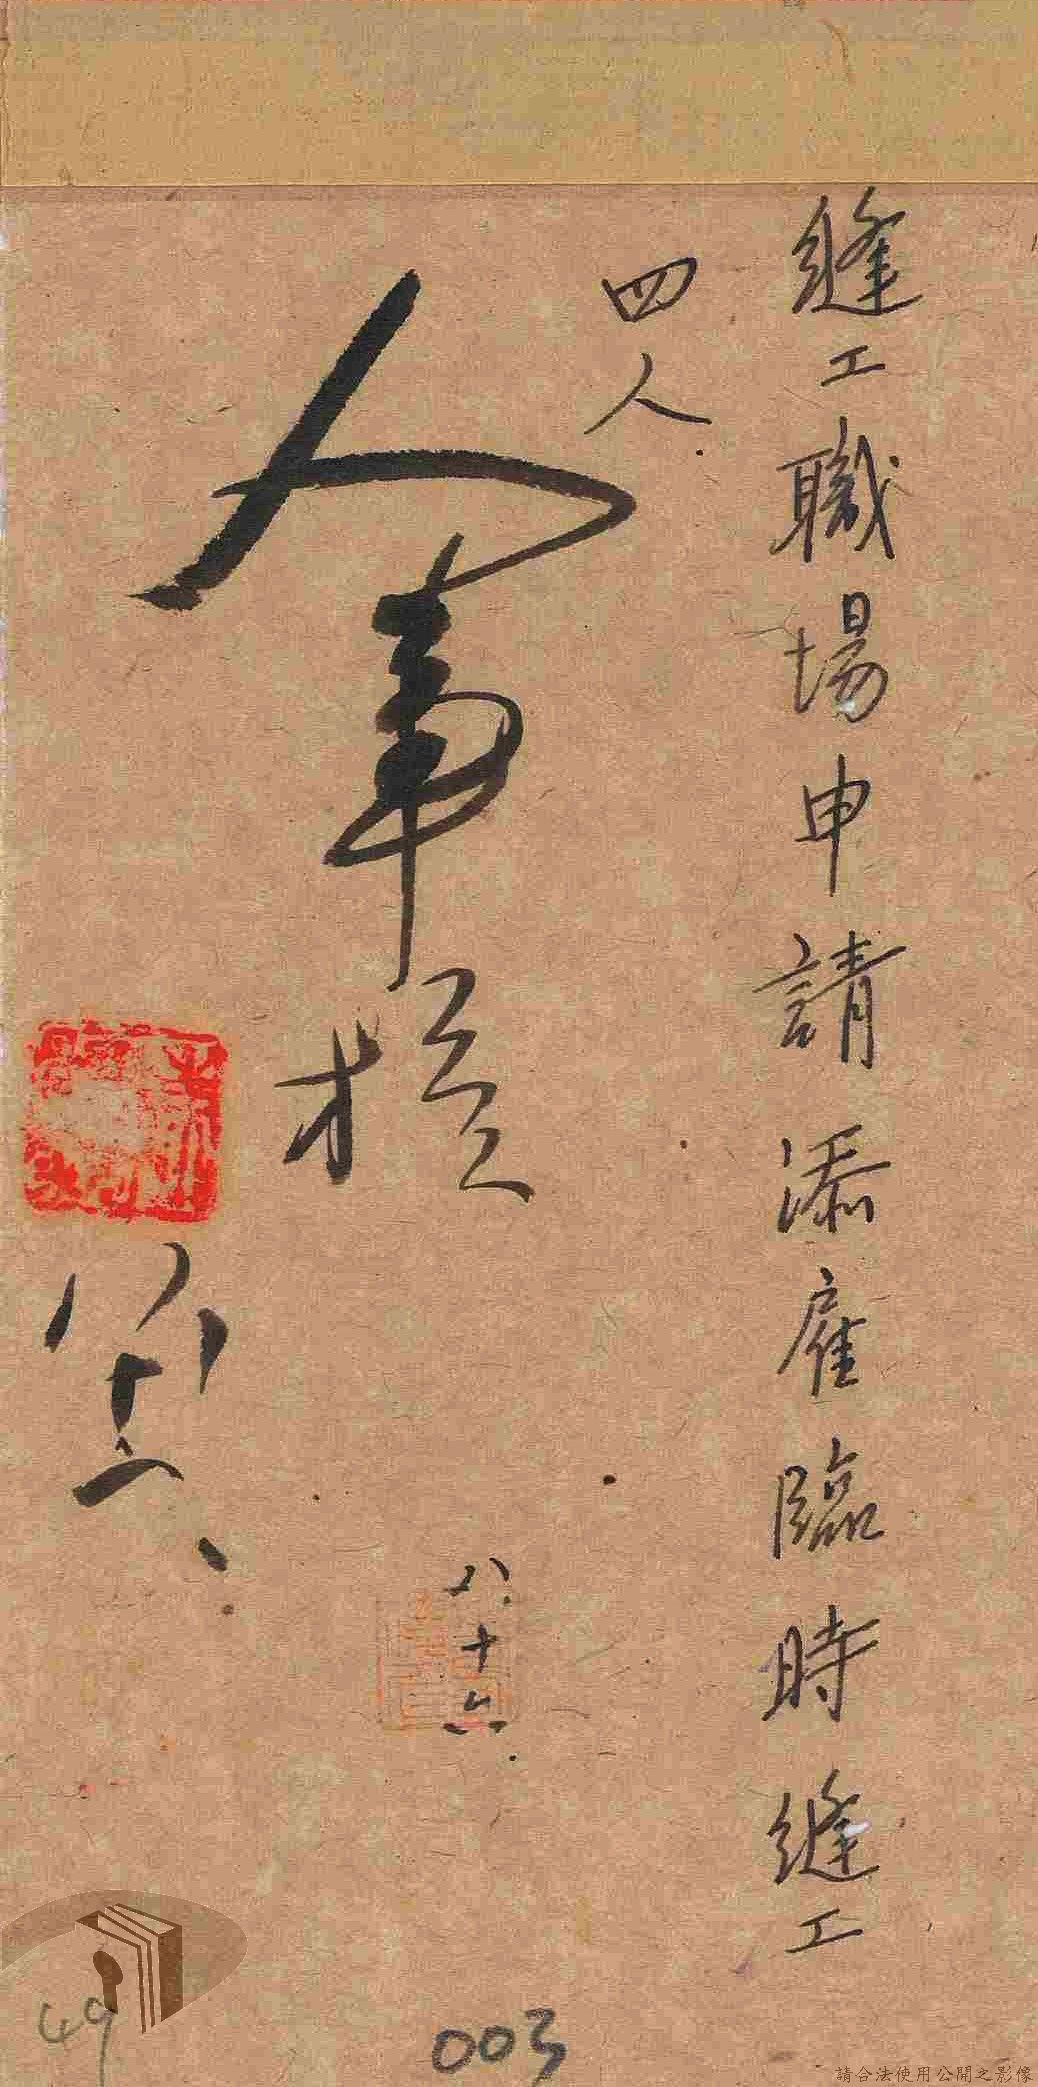 縫工職場申請添雇臨時縫工
四人
人事
八十六
八十六
49
003
請合法使用公開之影像